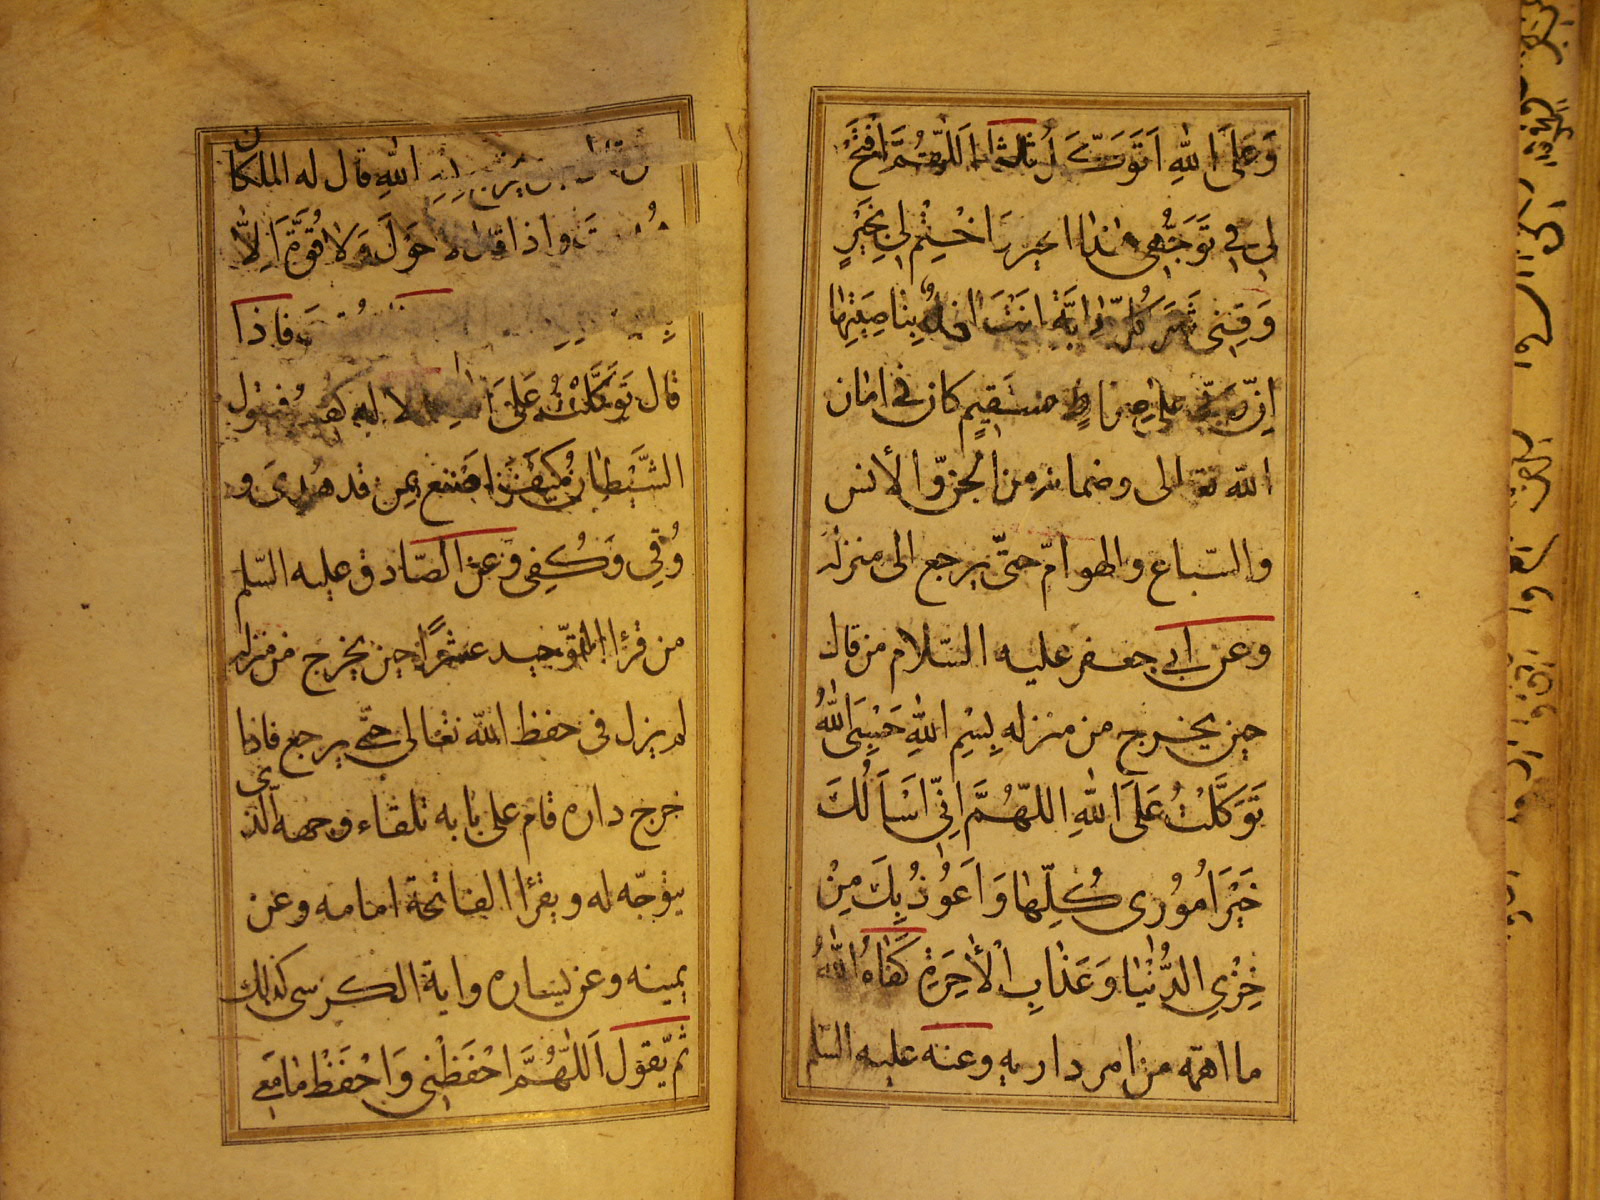 وَعَلَى اللّٰهِ اَتَوَكَّلُ ثلثا اَللّٰهُمَّ افْتَحْ
لِى فِى تَوَجُّهِى هٰذا بخير وَاخْتِمْ لِى بِخَيْرٍ
وَقِنِى شَرَّ كُلِّ دابَّةٍ اَنْتَ اخذٌ بِناصِيَتِهٰا
اِنَّ رَبِّى عَلىٰ صِراطٍ مستَقيمٍ كان فى امان
اللّه تعالى وضمانه من الجنّ والأنس
والسّباع والهوامّ حتّى يرجع الى منزله
وعن ابى جعفر عليه السّلام من قال
حين يخرج من منزله بِسْمِ اللّٰهِ حَسْبِىَ اللّٰهُ
تَوَكَّلْتُ عَلَى اللّٰهِ اللّهُمَّ اِنِّى اَسْاَلُكَ
خَيْرَ اُمُورى كُلِّهٰا وَاَعُوْذُ بِكَ مِنْ
خِزْىِ الدُّنْيٰا وَعَذٰابِ الْأٰخِرَةِ كَفٰاهُ اللّٰهُ
ما اهمّه من امر داريه وعنه عليه السّلم
يخرج بِسْمِ اللّٰهِ قال له الملكان
واذا قال لا حَوْلَ وَلا قُوَّةَ اِلّا
فاذا
قال تَوَكَّلْتُ عَلَى اللّٰه قالا له كفيت فيقول
الشَّيْطان كَيْفَ اصنع بمن قد هُدِىَ و
وُقِى وَكُفِى وعن الصّادق عليه السّلم
من قرأ التّوحيد عشرًا حين يخرج من منزله
لم يزل فى حفظ اللّه تعالى حتّى يرجع فاذا
خرج داره قام على بابه تلقاء وجهه الّذى
يتوجّه له ويقرأ الفاتحة امامه وعن
يمينه وعن يساره واية الكرسى كذلك
ثمّ يقول اَللّٰهُمَّ احْفَظْنِى وَاحْفَظْ مٰا مَعِى